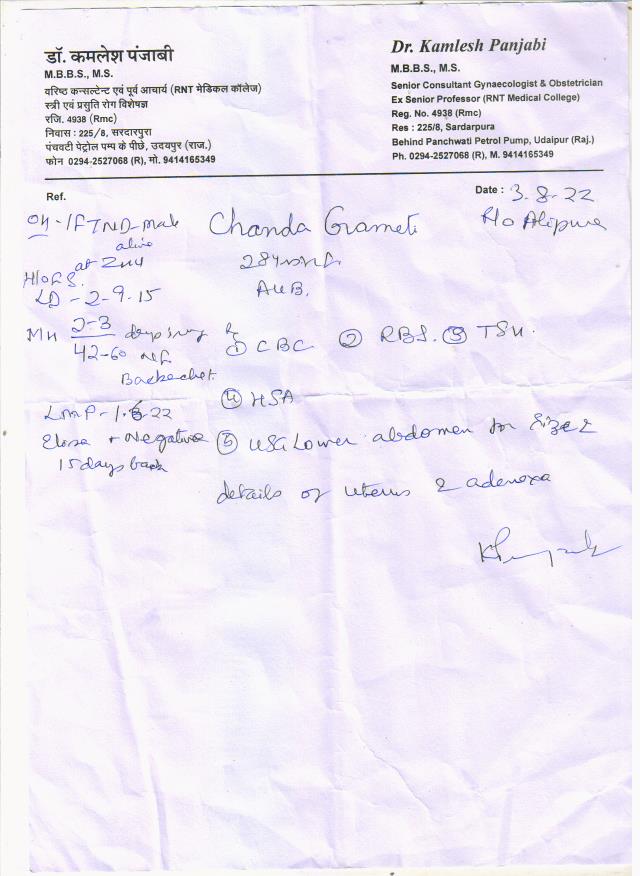 डॉ. कमलेश पंजाबी
M.B.B.S., M.S.
वरिष्ठ कन्सल्टेन्ट एवं पूर्व आचार्य (RNT मेडिकल कॉलेज)
स्त्री एवं प्रसुति रोग विशेषज्ञ
रजि. 4938 (Rmc)
निवास : 225/8, सरदारपुरा
पंचवटी पेट्रोल पम्प के पीछे, उदयपुर (राज.)
फोन 0294-2527068 (R), मो. 9414165349
Dr. Kamlesh Panjabi
M.B.B.S., M.S.
Senior Consultant Gynaecologist & Obstetrician
Ex Senior Professor (RNT Medical College)
Reg. No. 4938 (Rmc)
Res : 225/8, Sardarpura
Behind Panchwati Petrol Pump, Udaipur (Raj.)
Ph. 0294-2527068 (R), M. 9414165349
Ref.
Date : 3.8.22
R/o Alipura
Chanda Grameti
28
AUB.
OH - 1FTND - male
alive
at
LD - 2-9.15
MH 2-3 days
42-60
Backache
LMP - 1.6.22
+ Negative
15 days back
① CBC ② RBS. ③ TSH.
④ HSA
⑤ USG Lower abdomen for Size &
details of uterus & adenexa